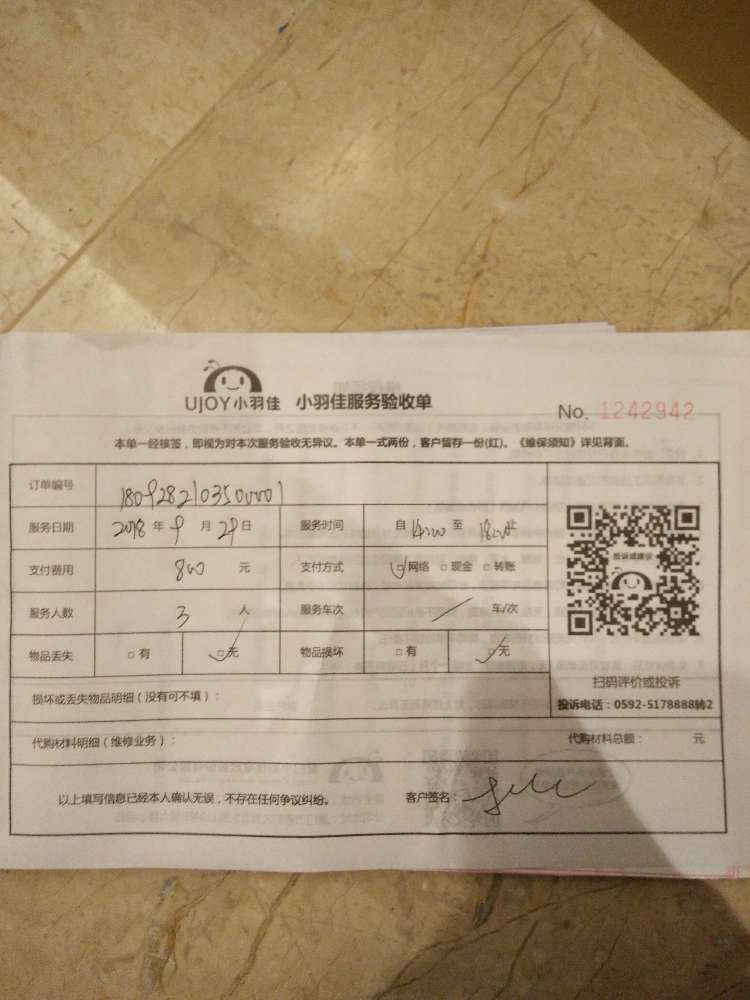 UJOY小羽佳 小羽佳服务验收单
No. 1242942
本单一经核签，即视为对本次服务验收无异议。本单一式两份，客户留存一份(红)。《维保须知》详见背面。
订单编号 180928210350001
服务日期 2018 年 9 月 29 日 服务时间 自 14:00 至 18:00 止
支付费用 800 元 支付方式 □网络 □现金 □转账
服务人数 3 人 服务车次 / 车/次
物品丢失 □有 □无 物品损坏 □有 □无
投诉或建议
扫码评价或投诉
投诉电话：0592-5178888转2
损坏或丢失物品明细（没有可不填）：
代购材料明细（维修业务）： 代购材料总额： 元
以上填写信息已经本人确认无误，不存在任何争议纠纷。 客户签名：